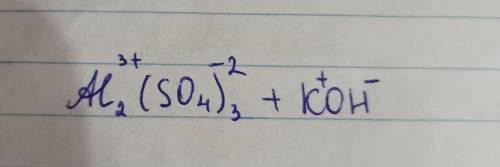 Al₂³⁺(SO₄)₃⁻² + K⁺OH⁻